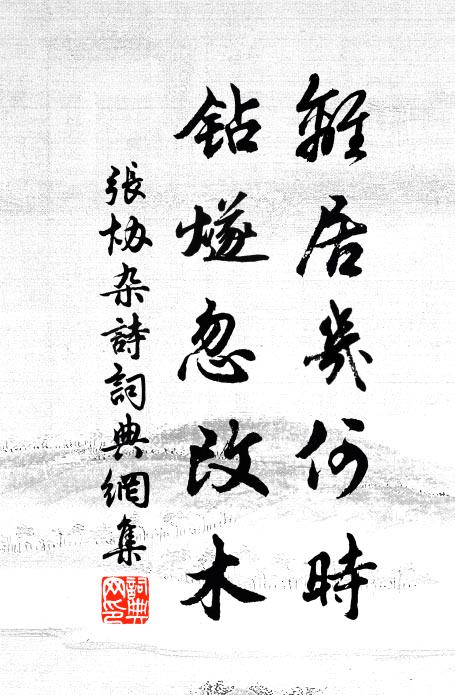 離居幾何時
鉆燧忽改木
張協杂詩詞典網集
詞典网印